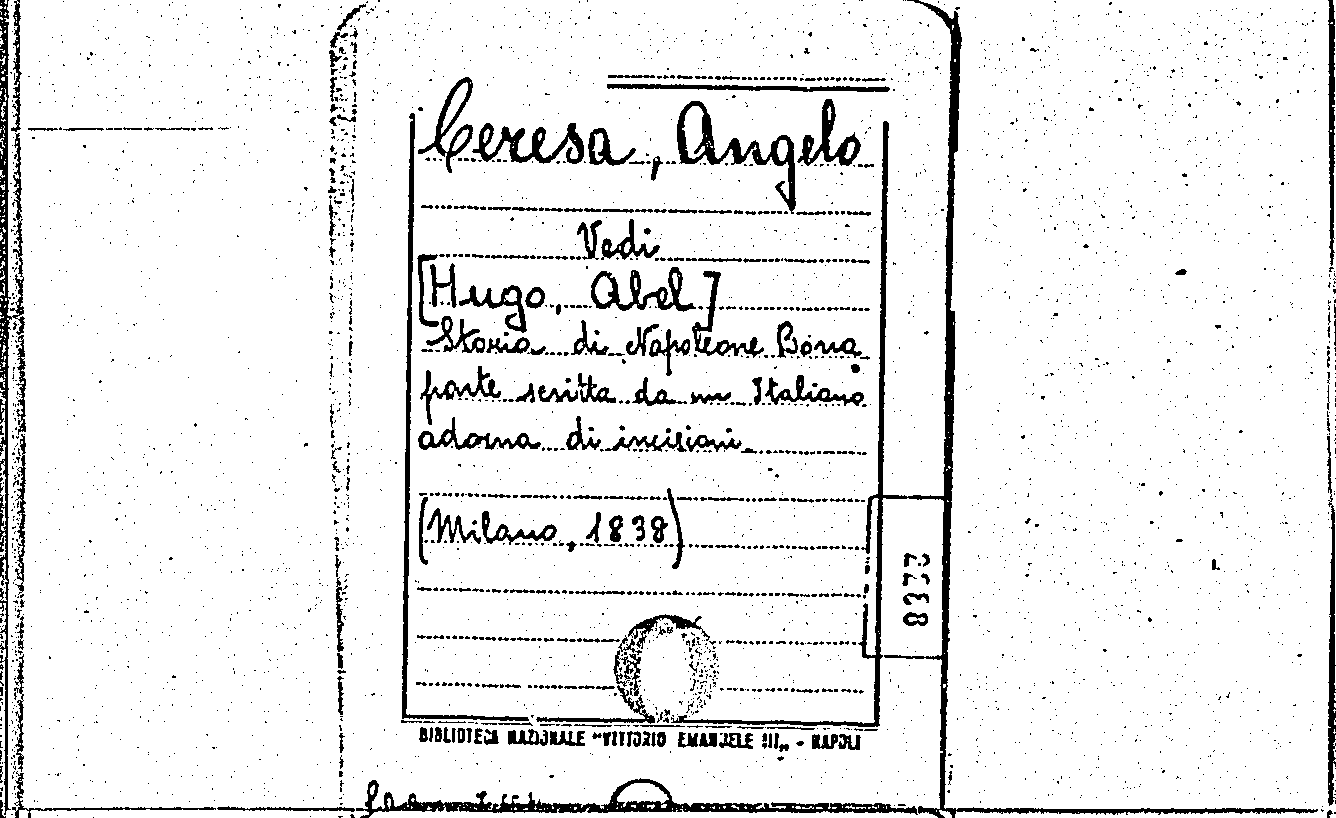 Ceresa, Angelo
Vedi
[Hugo, Abel]
Storia di Napoleone Bona
parte scritta da un Italiano
adorna di incisioni.
(Milano, 1838)
8377
BIBLIOTECA NAZIONALE "VITTORIO EMANUELE III„ - NAPOLI